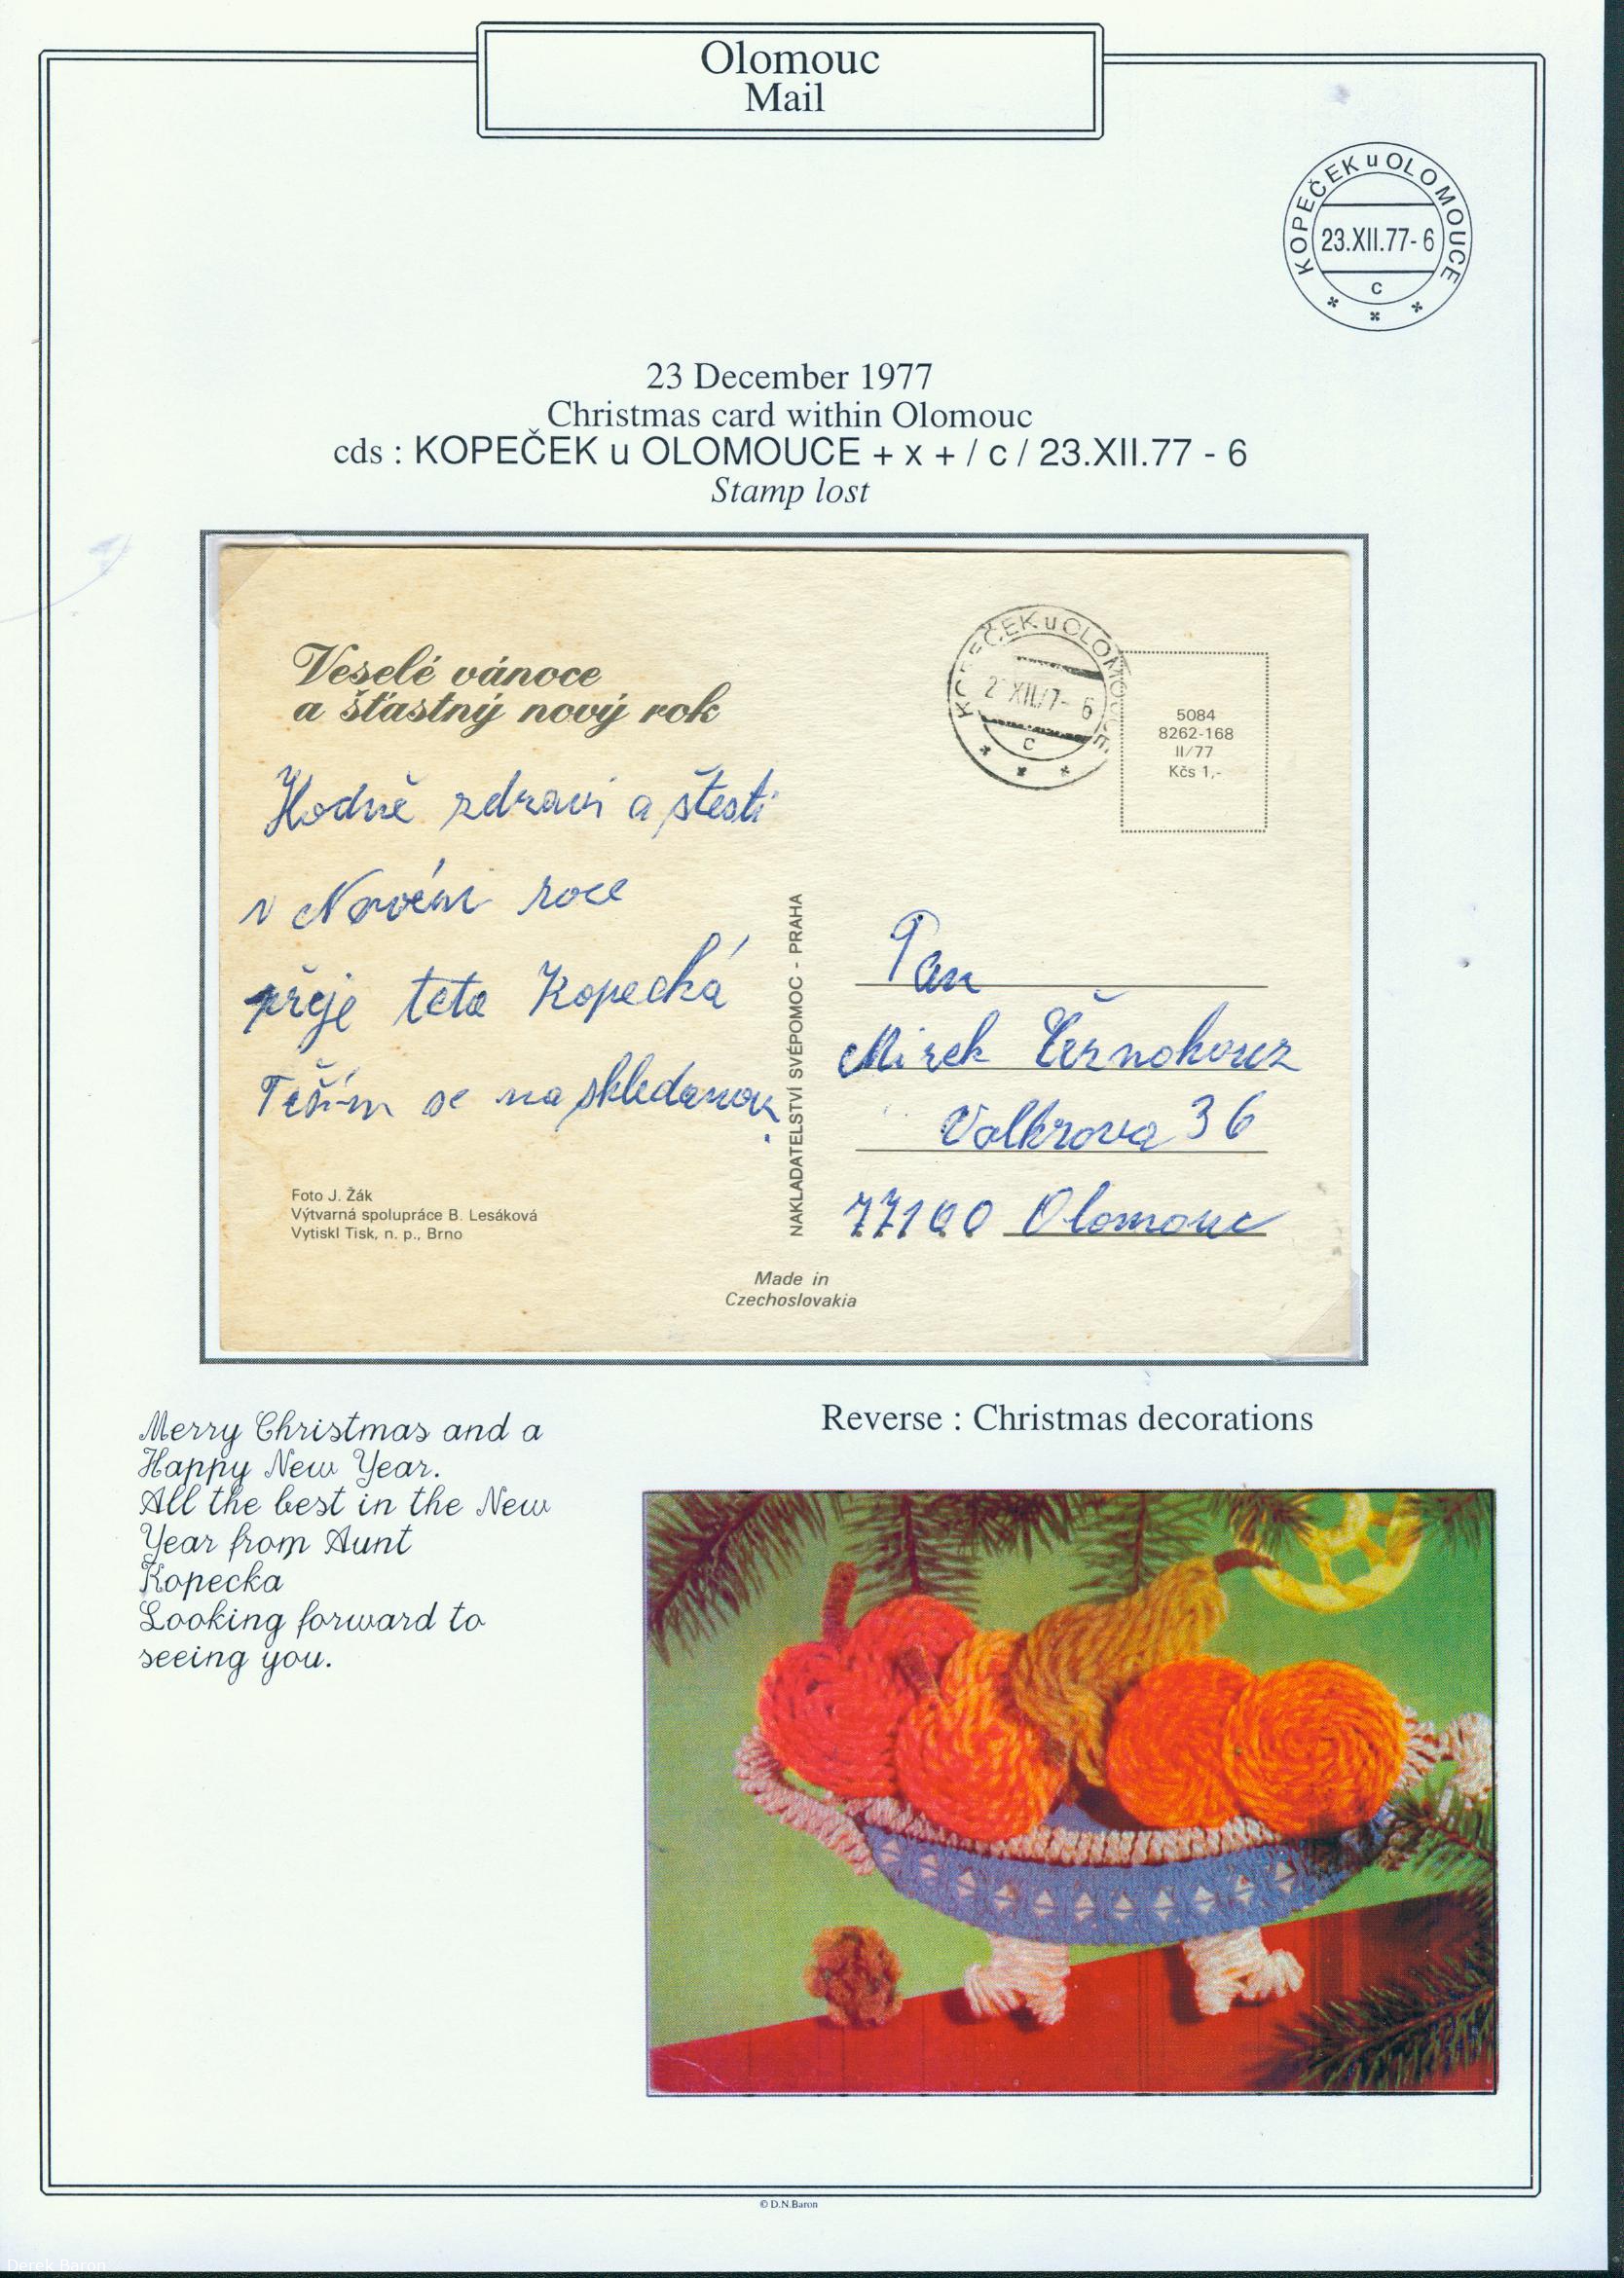 Olomouc
Mail
KOPEČEK u OLOMOUCE
23.XII.77-6
c
23 December 1977
Christmas card within Olomouc
cds : KOPEČEK u OLOMOUCE + x + / c / 23.XII.77 - 6
Stamp lost
Veselé vánoce
a šťastný nový rok
Hodně zdraví a štestí
v Novém roce
přeje teta Kopecká
Těším se na skledanou.
Foto J. Žák
Výtvarná spolupráce B. Lesáková
Vytiskl Tisk, n. p., Brno
NAKLADATELSTVÍ SVÉPOMOC - PRAHA
Made in
Czechoslovakia
KOPEČEK u OLOMOUCE
2 XII.77- 6
c
5084
8262-168
II/77
Kčs 1,-
Pan
Mirek Černohouz
Volkrova 36
77100 Olomouc
Merry Christmas and a
Happy New Year.
All the best in the New
Year from Aunt
Kopecka
Looking forward to
seeing you.
Reverse : Christmas decorations
© D.N.Baron
Derek Baron